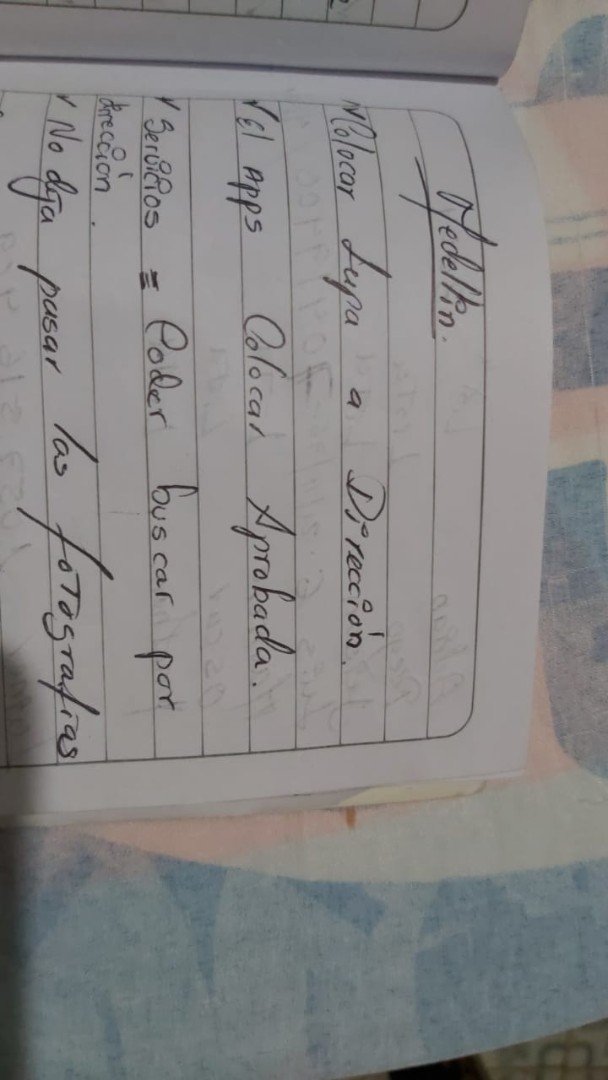 Medellín.
✓ Colocar Lupa a Dirección.
✓ El Apps Colocar Aprobada.
✓ Servicios = Poder buscar por
dirección.
✓ No deja pasar las fotografías